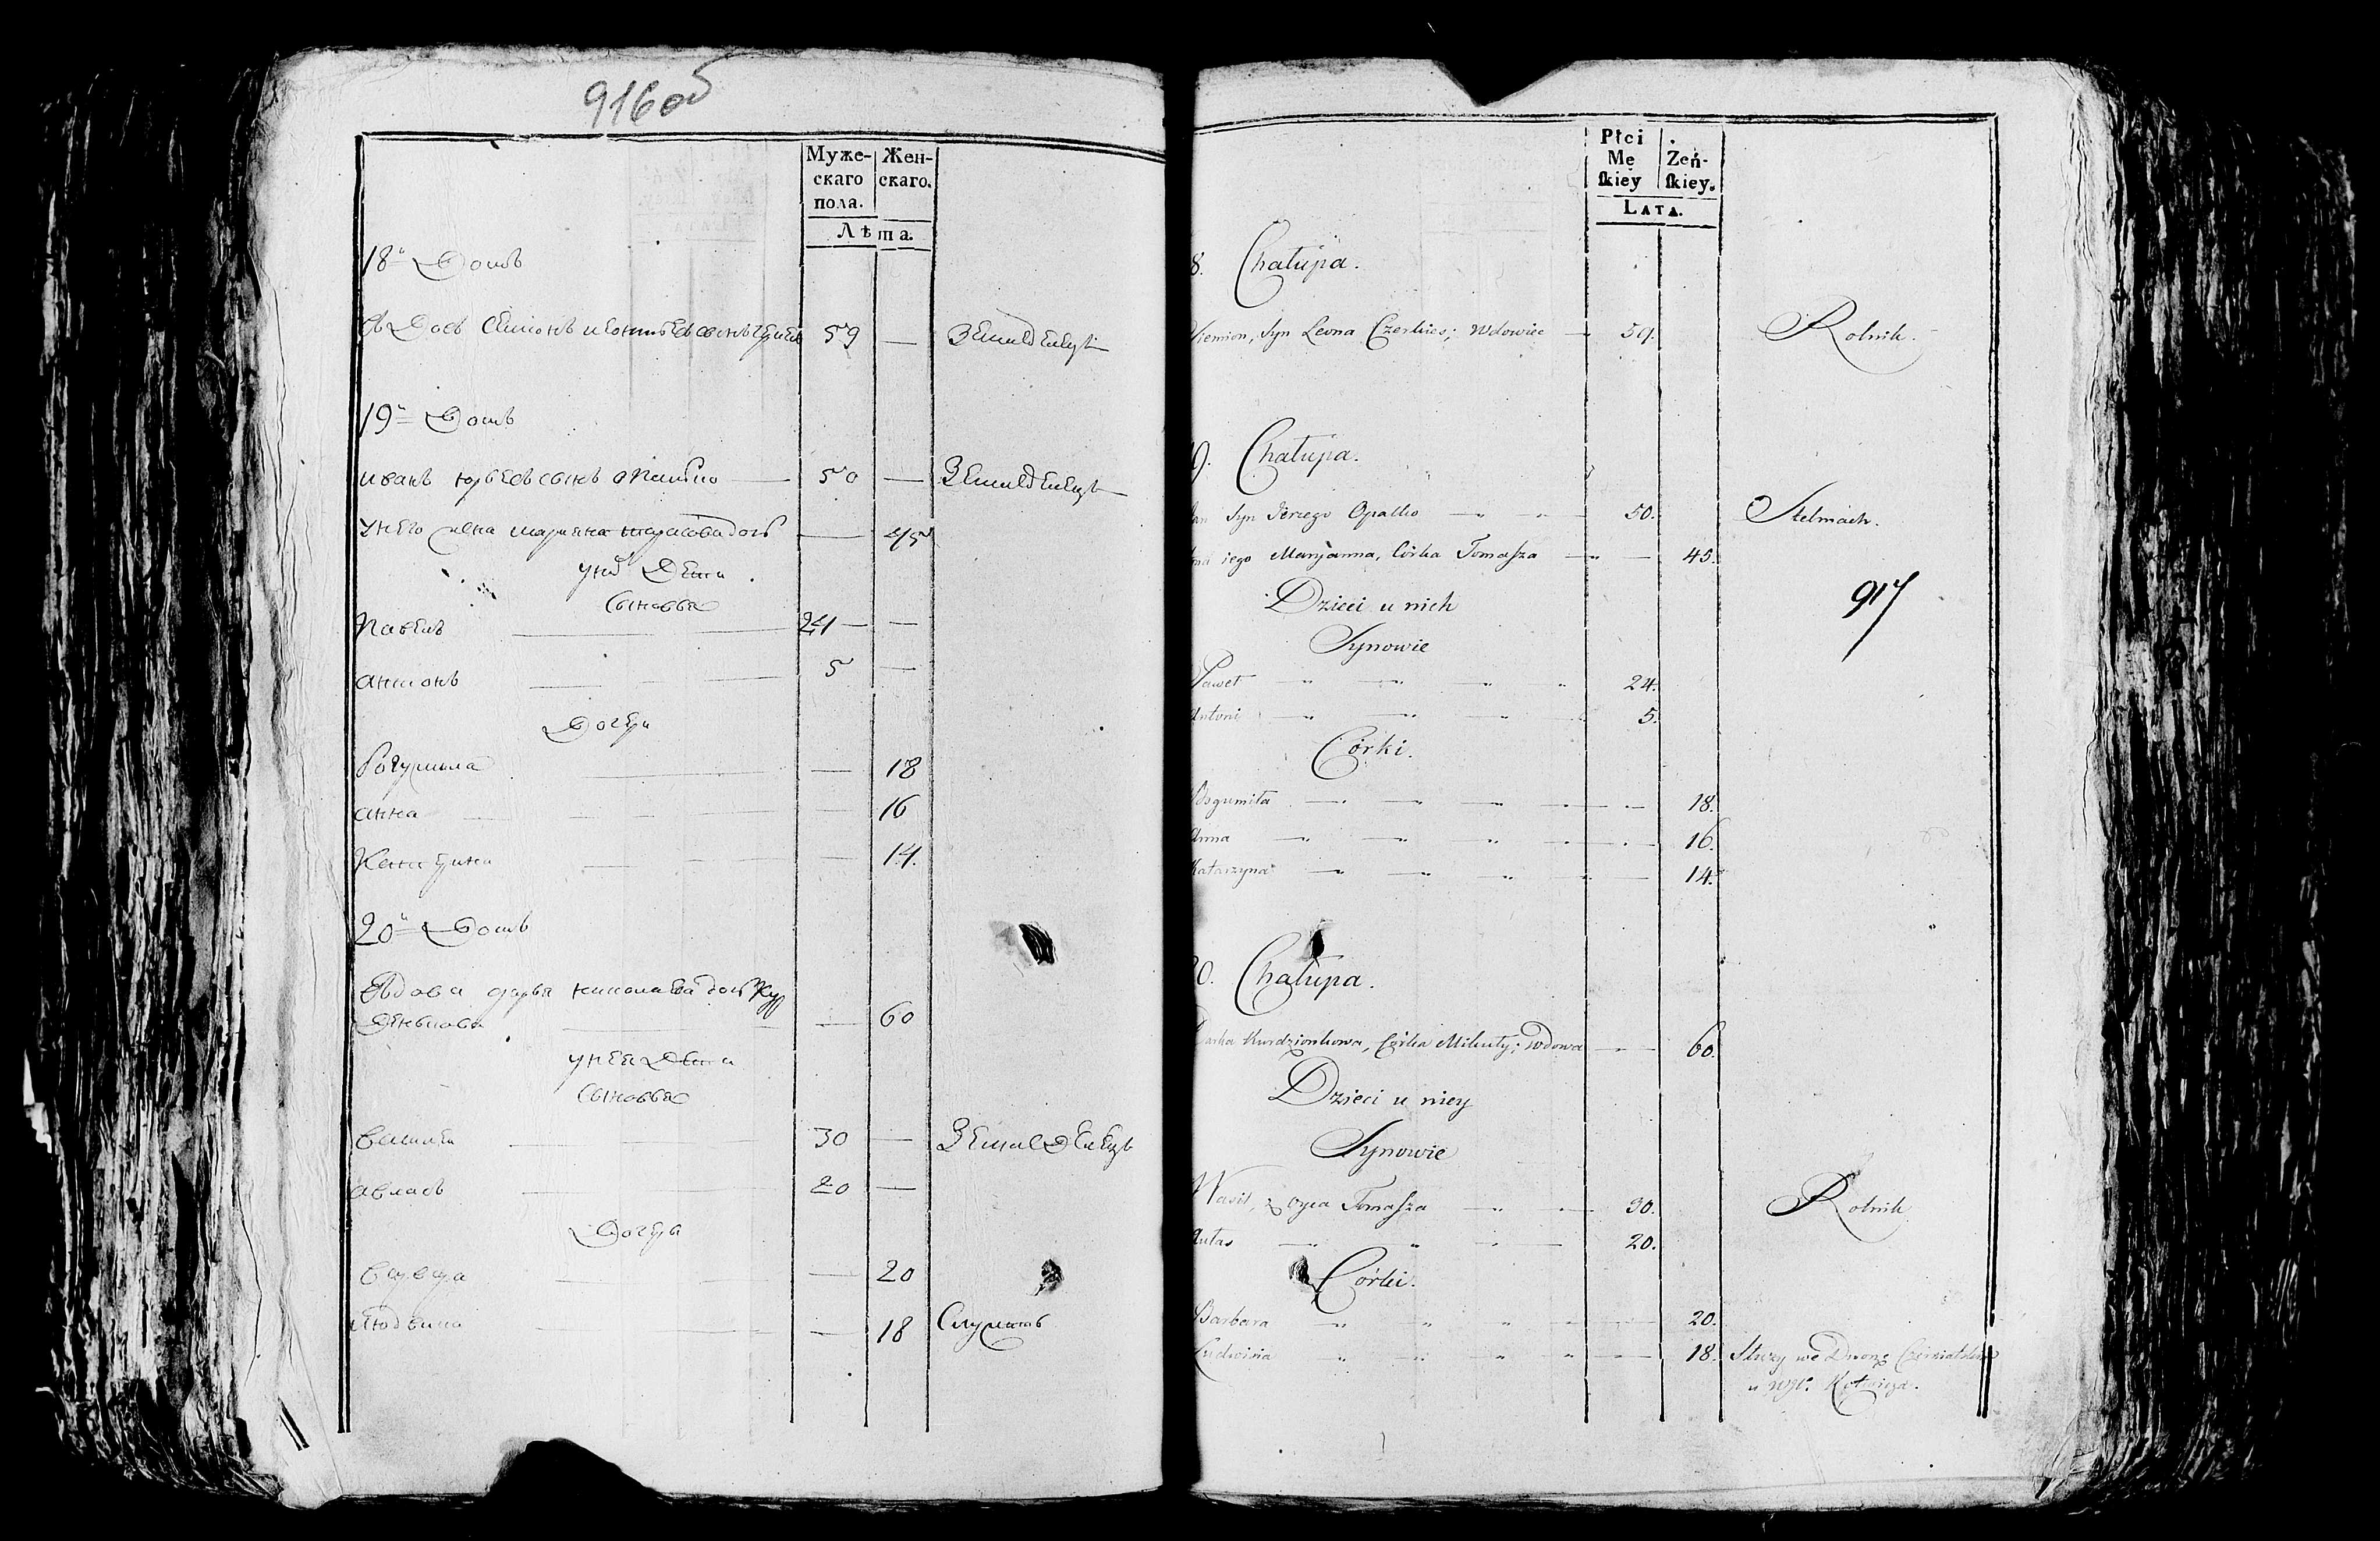 916 об
Муже-
скаго
пола.
Жен-
скаго.
Лѣта.
18й Домъ
Вдовъ Семіонъ Леонтіевъ сынъ 59 — Земледелецъ
19й Домъ
Иванъ Юрьевъ сынъ Опалко — 50 — Земледелецъ
У него жена Маріяна дочь — 45
у ныхъ Дети
Сыновья
Павелъ — 24 —
Антонъ — 5 —
Дочери
Богумила — 18
Анна — 16
Катерина — 14.
20й Домъ
Вдова Дарья Николаева дочь Кур
Дзенкова — 60
у нея Дети
Сыновья
Василей — 30 — Земледелецъ
Авласъ — 20 —
Дочеры
Варвара — 20
Людвика — 18 Служитъ
Płci
Mę
skiey
Żeń-
skiey.
Lata.
8. Chałupa.
Siemion, Syn Leona Czerkies; Wdowiec — 59. Rolnik.
9. Chałupa.
Jan Syn Jerzego Opałko — 50. Stelmach.
Żona iego Maryanna, Córka Tomasza — 45.
917
Dzieci u nich
Synowie
Paweł — 24.
Antoni — 5.
Córki.
Bogumiła — 18.
Anna — 16.
Katarzyna — 14.
20. Chałupa.
Darka Kurdzionkowa, Córka Mikuty; Wdowa — 60.
Dzieci u niey
Synowie
Wasil, z oyca Tomasza — 30. Rolnik
Aułas — 20.
Córki.
Barbara — 20.
Ludwisia — 18. Służy we Dworze
u WJP. Kotwicza.